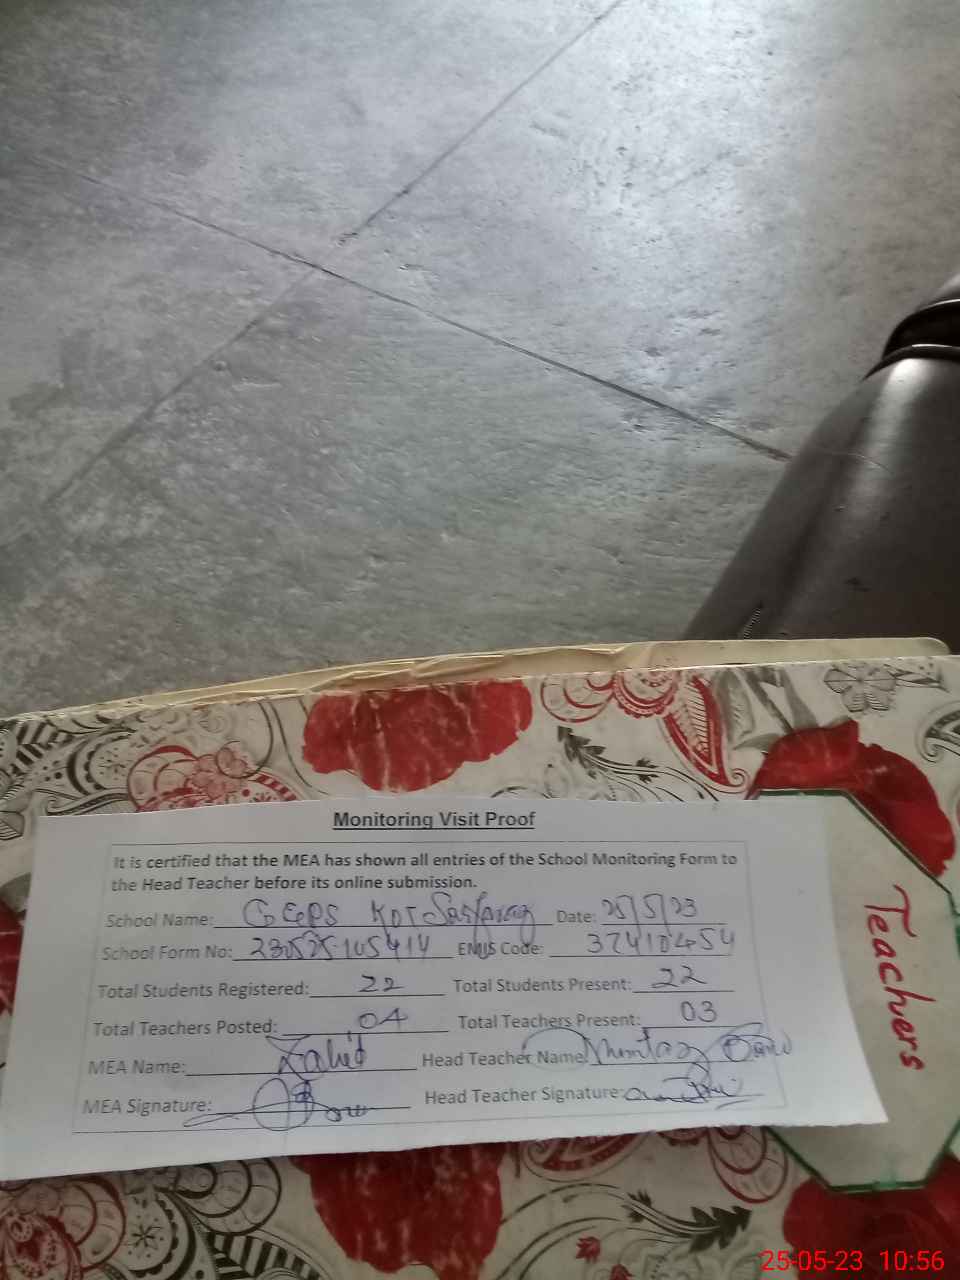 Monitoring Visit Proof
It is certified that the MEA has shown all entries of the School Monitoring Form to
the Head Teacher before its online submission.
School Name: GGPS Kot Sarfaraz Date: 25/5/23
School Form No: 230525105414 EMIS Code: 37410454
Total Students Registered: 22 Total Students Present: 22
Total Teachers Posted: 04 Total Teachers Present: 03
MEA Name: Zahid Head Teacher Name: Mumtaz
MEA Signature: Head Teacher Signature:
Teachers
25-05-23 10:56